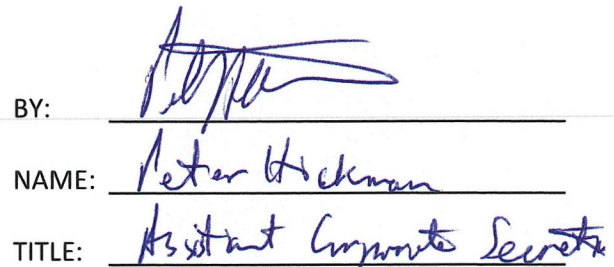 BY:
NAME: Peter Hickman
TITLE: Assistant Corporate Secretary